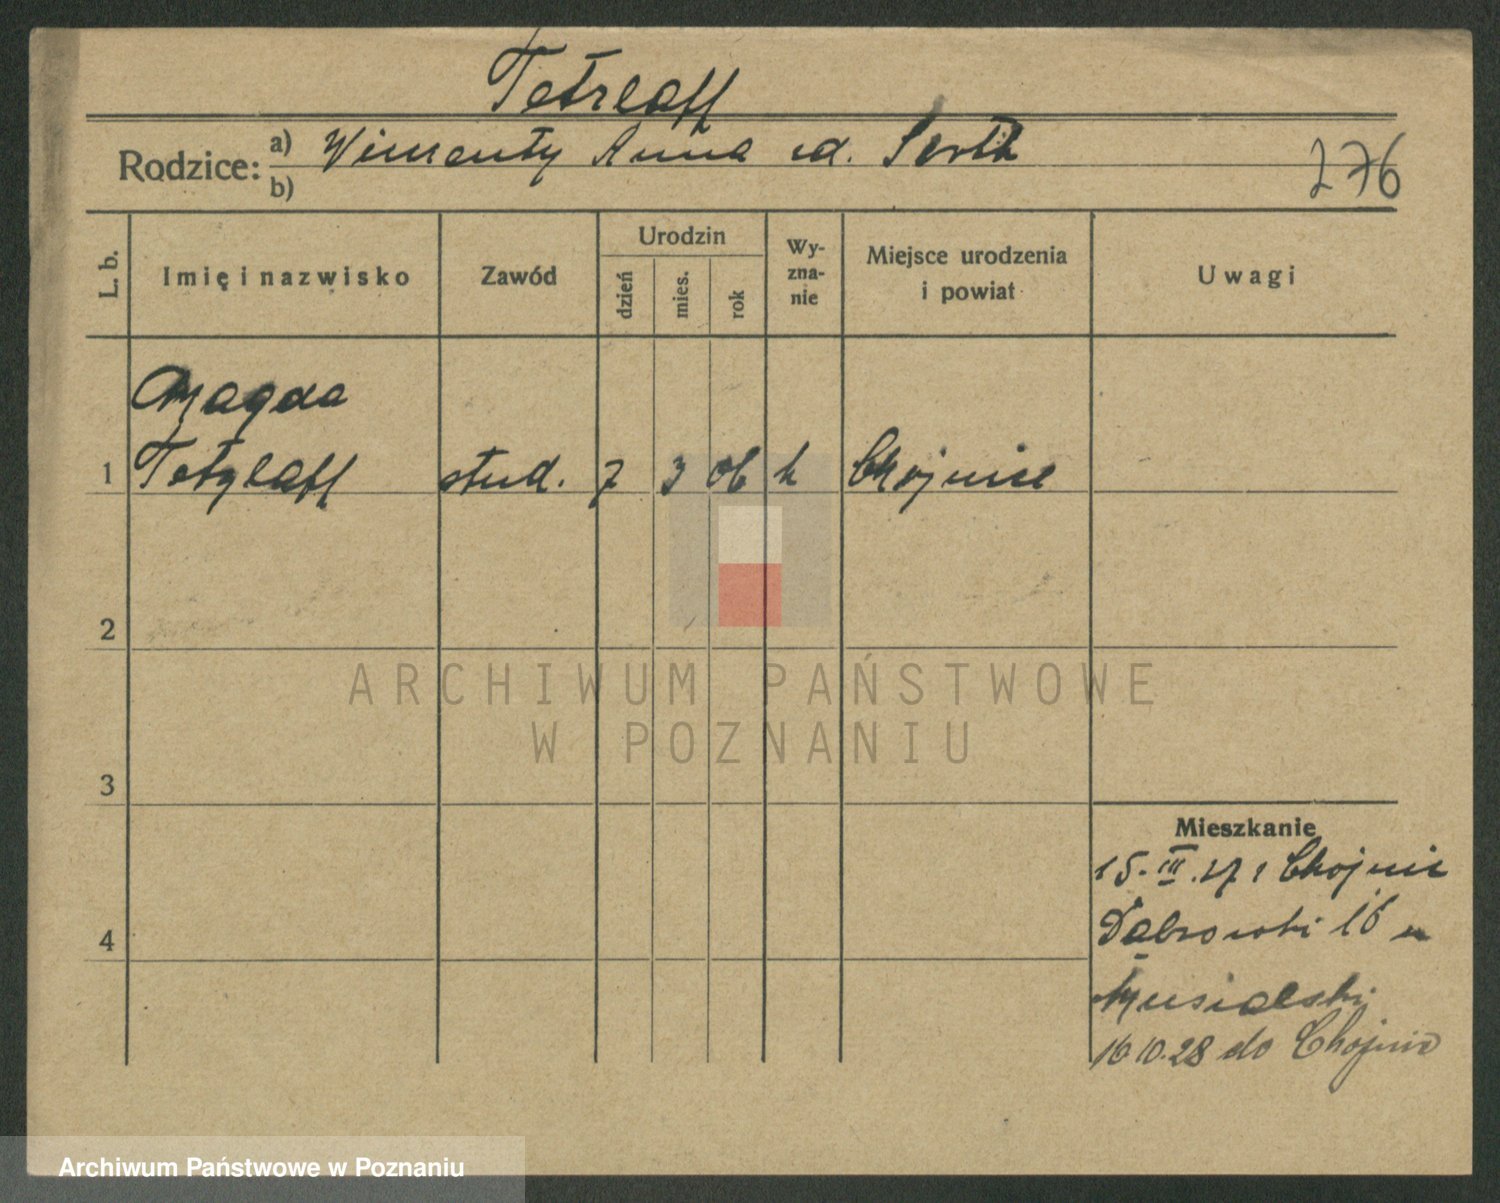 Tetzlaff
Rodzice:
a) Wincenty Anna zd.
b)
276
L. b.
Imię i nazwisko
Zawód
Urodzin
dzień
mies.
rok
Wy-
zna-
nie
Miejsce urodzenia
i powiat
Uwagi
Magda
1 Tetzlaff stud. 7 3 06 k Chojnice
2
ARCHIWUM PAŃSTWOWE
W POZNANIU
3
Mieszkanie
15. III. 27 z Chojnic
4
Dąbrowski 16 u
Musialski
16 10. 28 do Chojnic
Archiwum Państwowe w Poznaniu